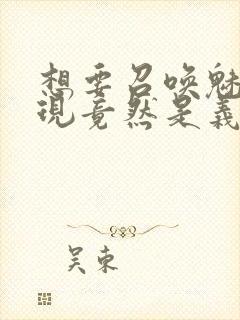 想要召唤魅
现竟然是義
吴東